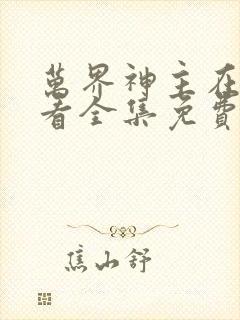 萬界神主在
看全集免費
焦山舒